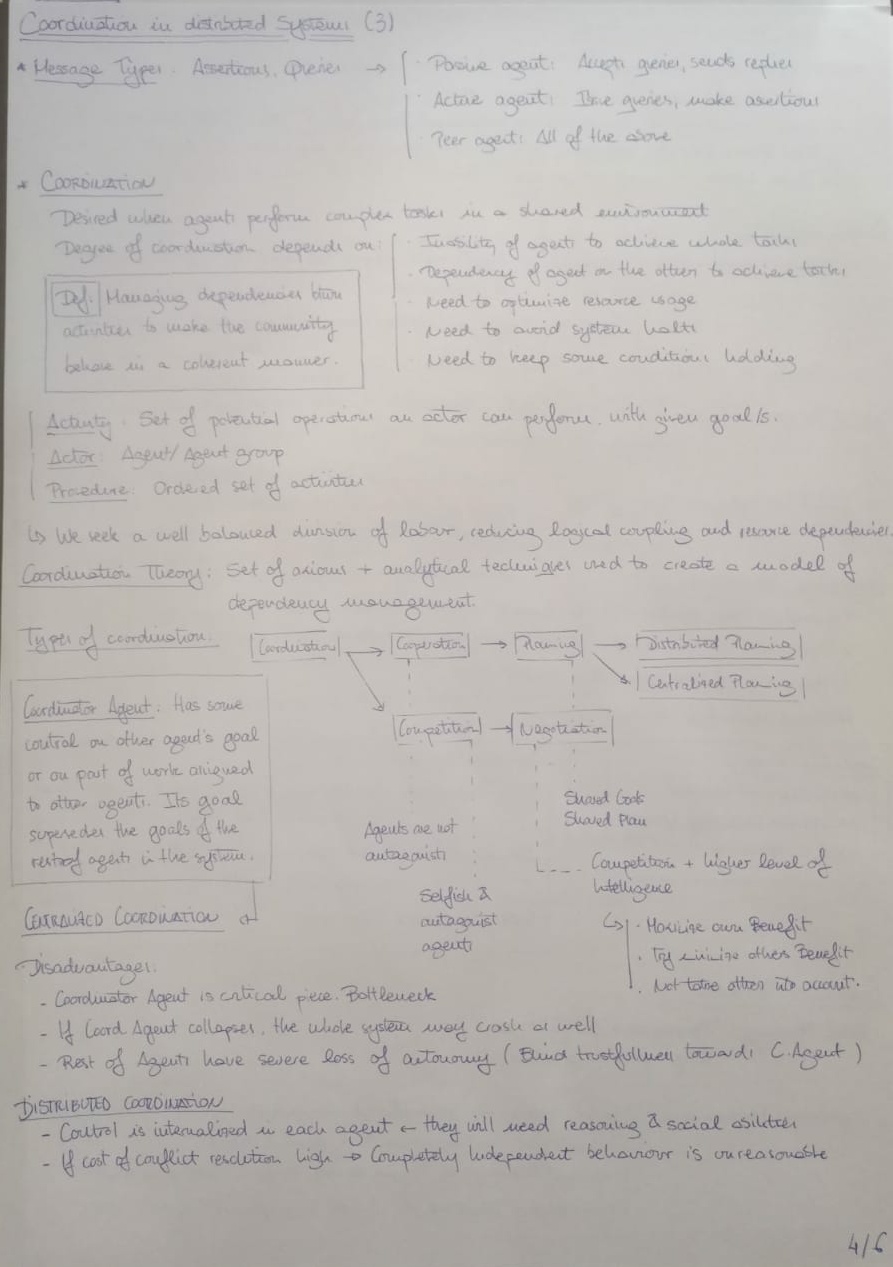 Coordination in distributed Systems (3)
* Message Types. Assertions, Queries → Passive agent: Accepts queries, sends replies
· Active agent: Issue queries, make assertions
Peer agent: All of the above
* COORDINATION
Desired when agents perform complex tasks in a shared environment
Degree of coordination depends on: · Inability of agents to achieve whole tasks
· Dependency of agent on the others to achieve tasks
· Need to optimize resource usage
· Need to avoid system halts
· Need to keep some conditions holding
Def: Managing dependencies btwn
activities to make the community
behave in a coherent manner.
Activity. Set of potential operations an actor can perform, with given goal/s.
Actor: Agent/Agent group
Procedure: Ordered set of activities
↳ We seek a well balanced division of labour, reducing logical coupling and resource dependencies.
Coordination Theory: Set of axioms + analytical techniques used to create a model of
dependency management.
Types of coordination. Coordination → Cooperation → Planning → Distributed Planning
Centralized Planning
Competition → Negotiation
Coordinator Agent: Has some
control on other agent's goal
or on part of work assigned
to other agents. Its goal
supersedes the goals of the
rest of agents in the system.
Shared Goals
Shared Plan
Agents are not
antagonists
Competition + higher level of
Intelligence
Selfish &
antagonist
agents
↳ · Maximize own Benefit
· Try minimize others Benefit
· Not take others into account.
CENTRALIZED COORDINATION
Disadvantages.
- Coordinator Agent is critical piece. Bottleneck
- If Coord Agent collapses, the whole system may crash as well
- Rest of Agents have severe loss of autonomy (Blind trustfullness towards C.Agent)
DISTRIBUTED COORDINATION
- Control is internalized in each agent ← they will need reasoning & social abilities
- If cost of conflict resolution high → Completely Independent behaviour is unreasonable
4/6